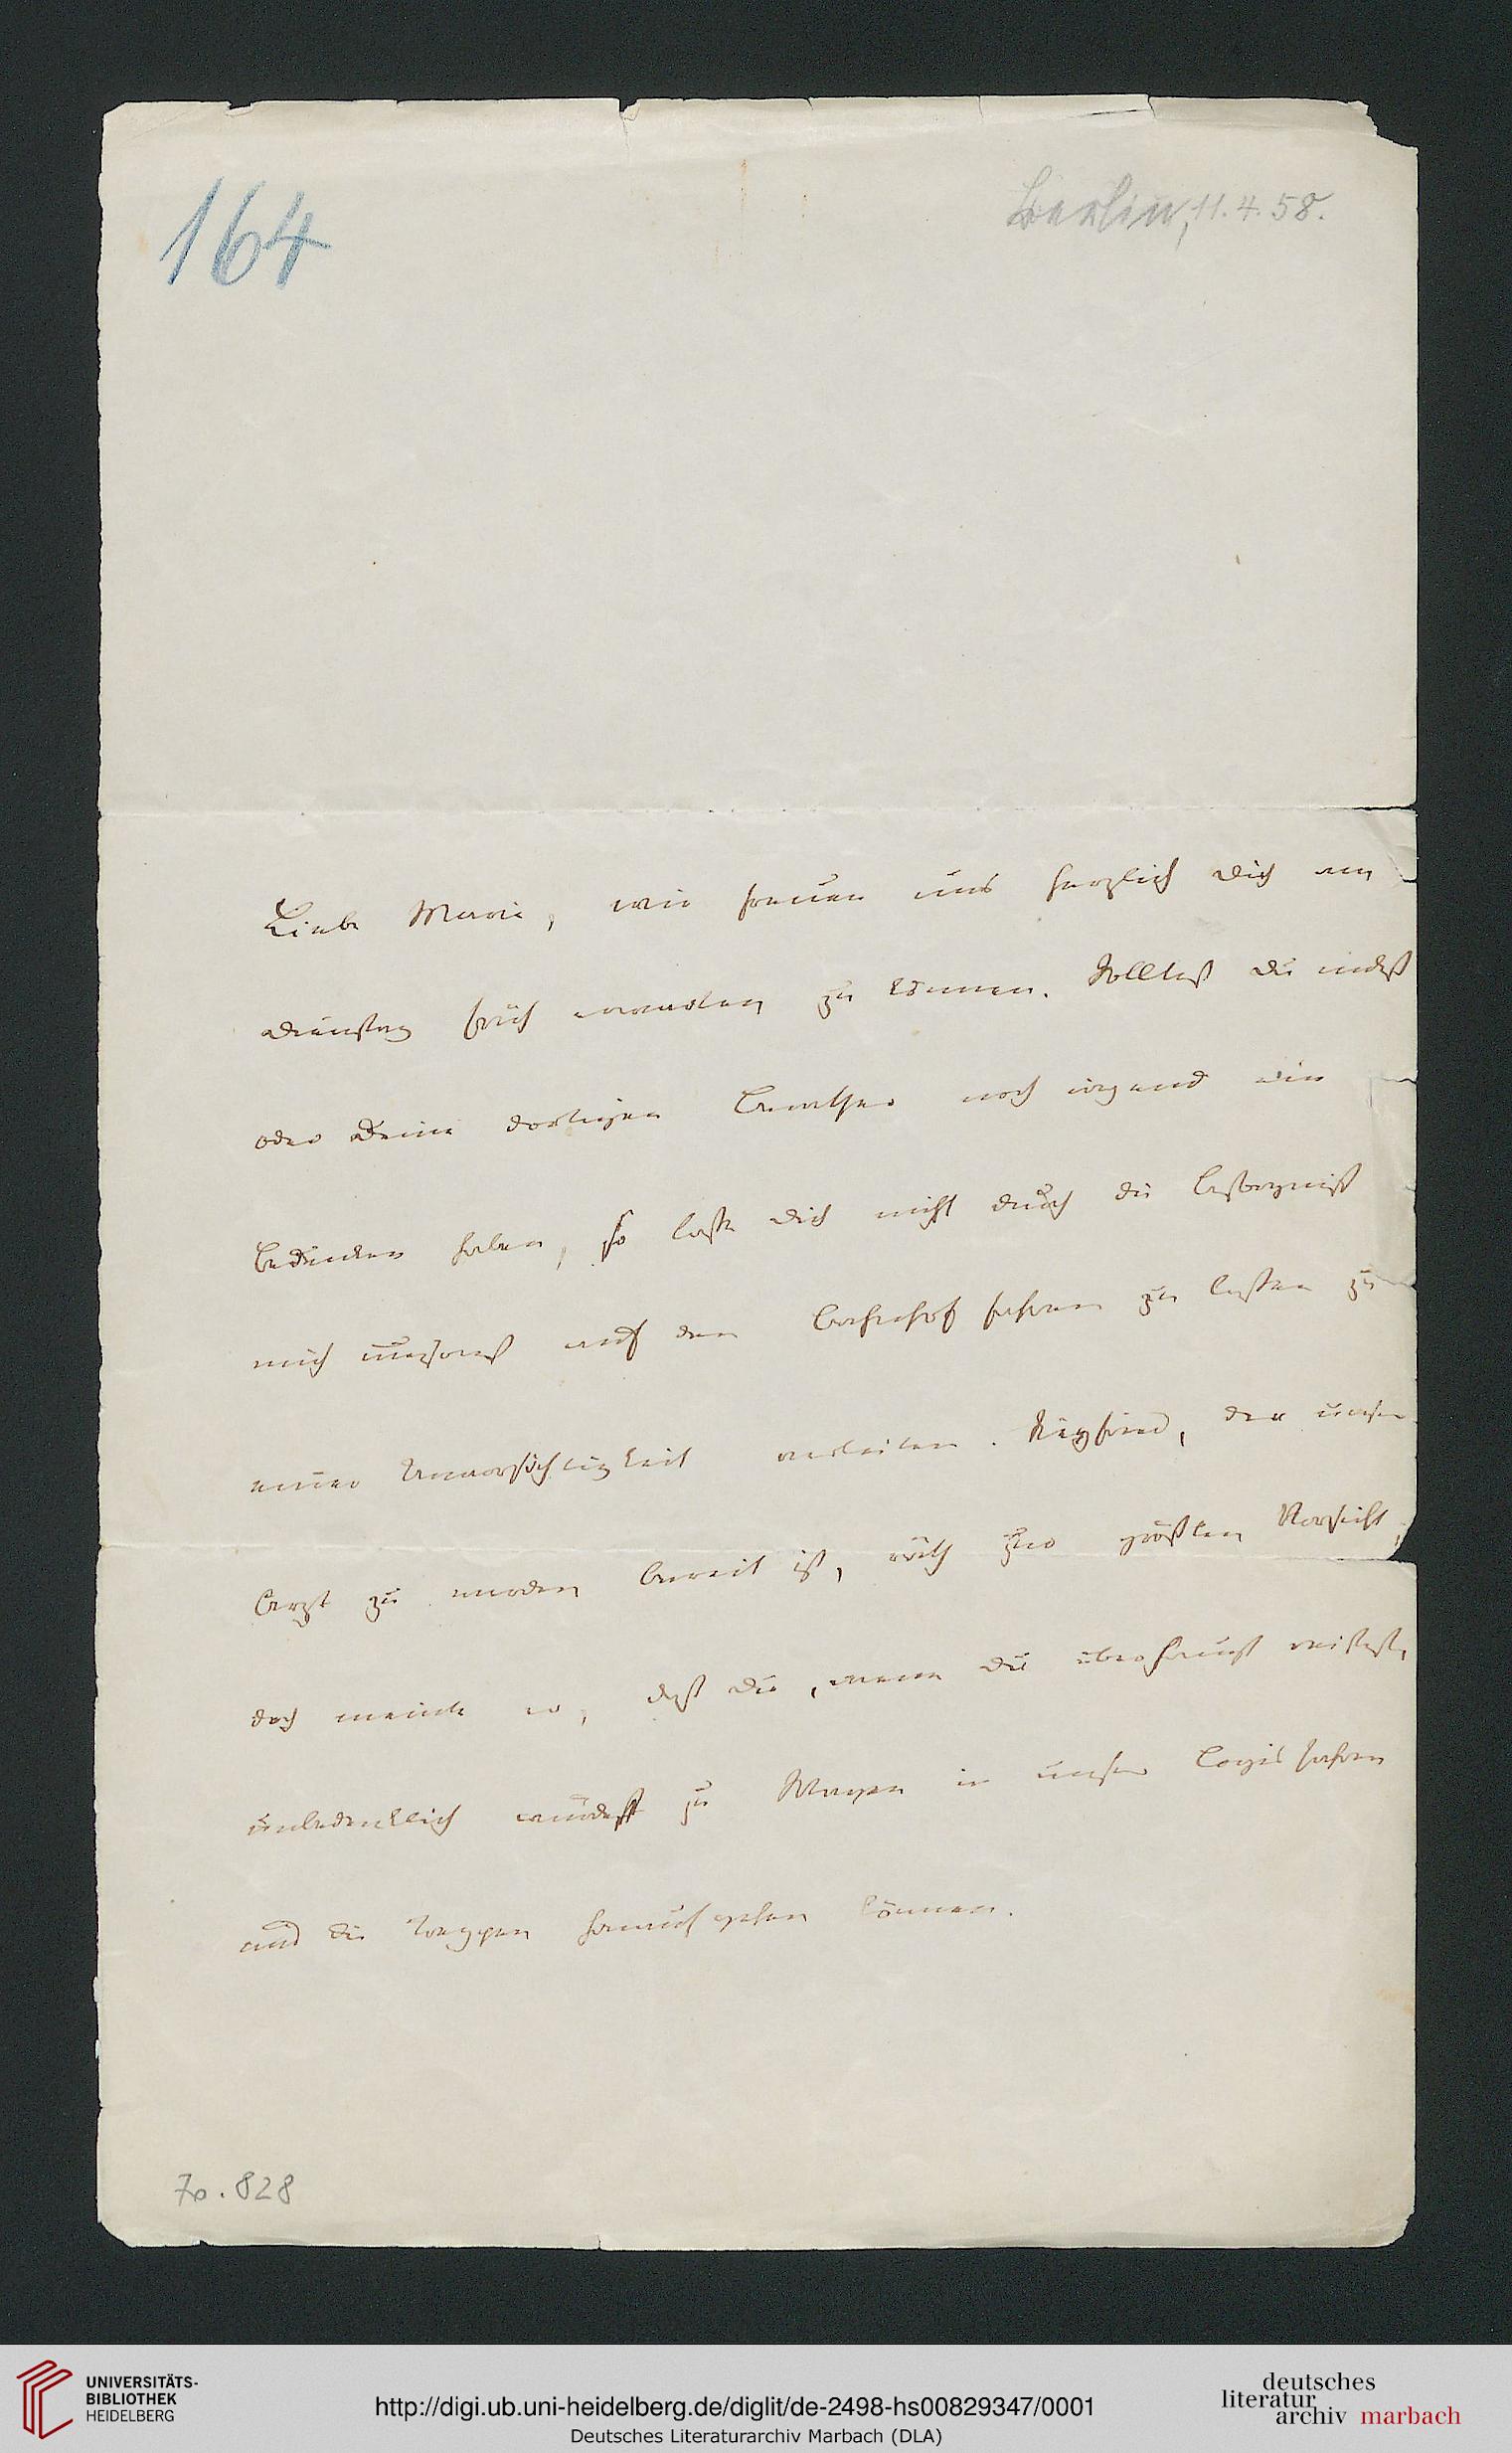 164
Berlin, 11. 4. 58.
Liebe Marie, wir freuen uns herzlich Dich am
Dienstag früh erwarten zu können. Solltest Du indeß
oder Deine dortigen Berather noch irgend ein
Bedenken haben, so lasse Dich nicht durch die Besorgniß
mich umsonst auf den Bahnhof fahren zu lassen zu
einer Unvorsichtigkeit verleiten. der unser
Arzt zu werden bereit ist, räth zur größten Vorsicht,
doch meinte er, daß Du, wenn Du überhaupt reisest,
unbedenklich würdest zu Wagen in unser Logis fahren
und die Treppen hinauf gehen können.
70.828
UNIVERSITÄTS-
BIBLIOTHEK
HEIDELBERG
http://digi.ub.uni-heidelberg.de/diglit/de-2498-hs00829347/0001
Deutsches Literaturarchiv Marbach (DLA)
deutsches
literatur
archiv marbach